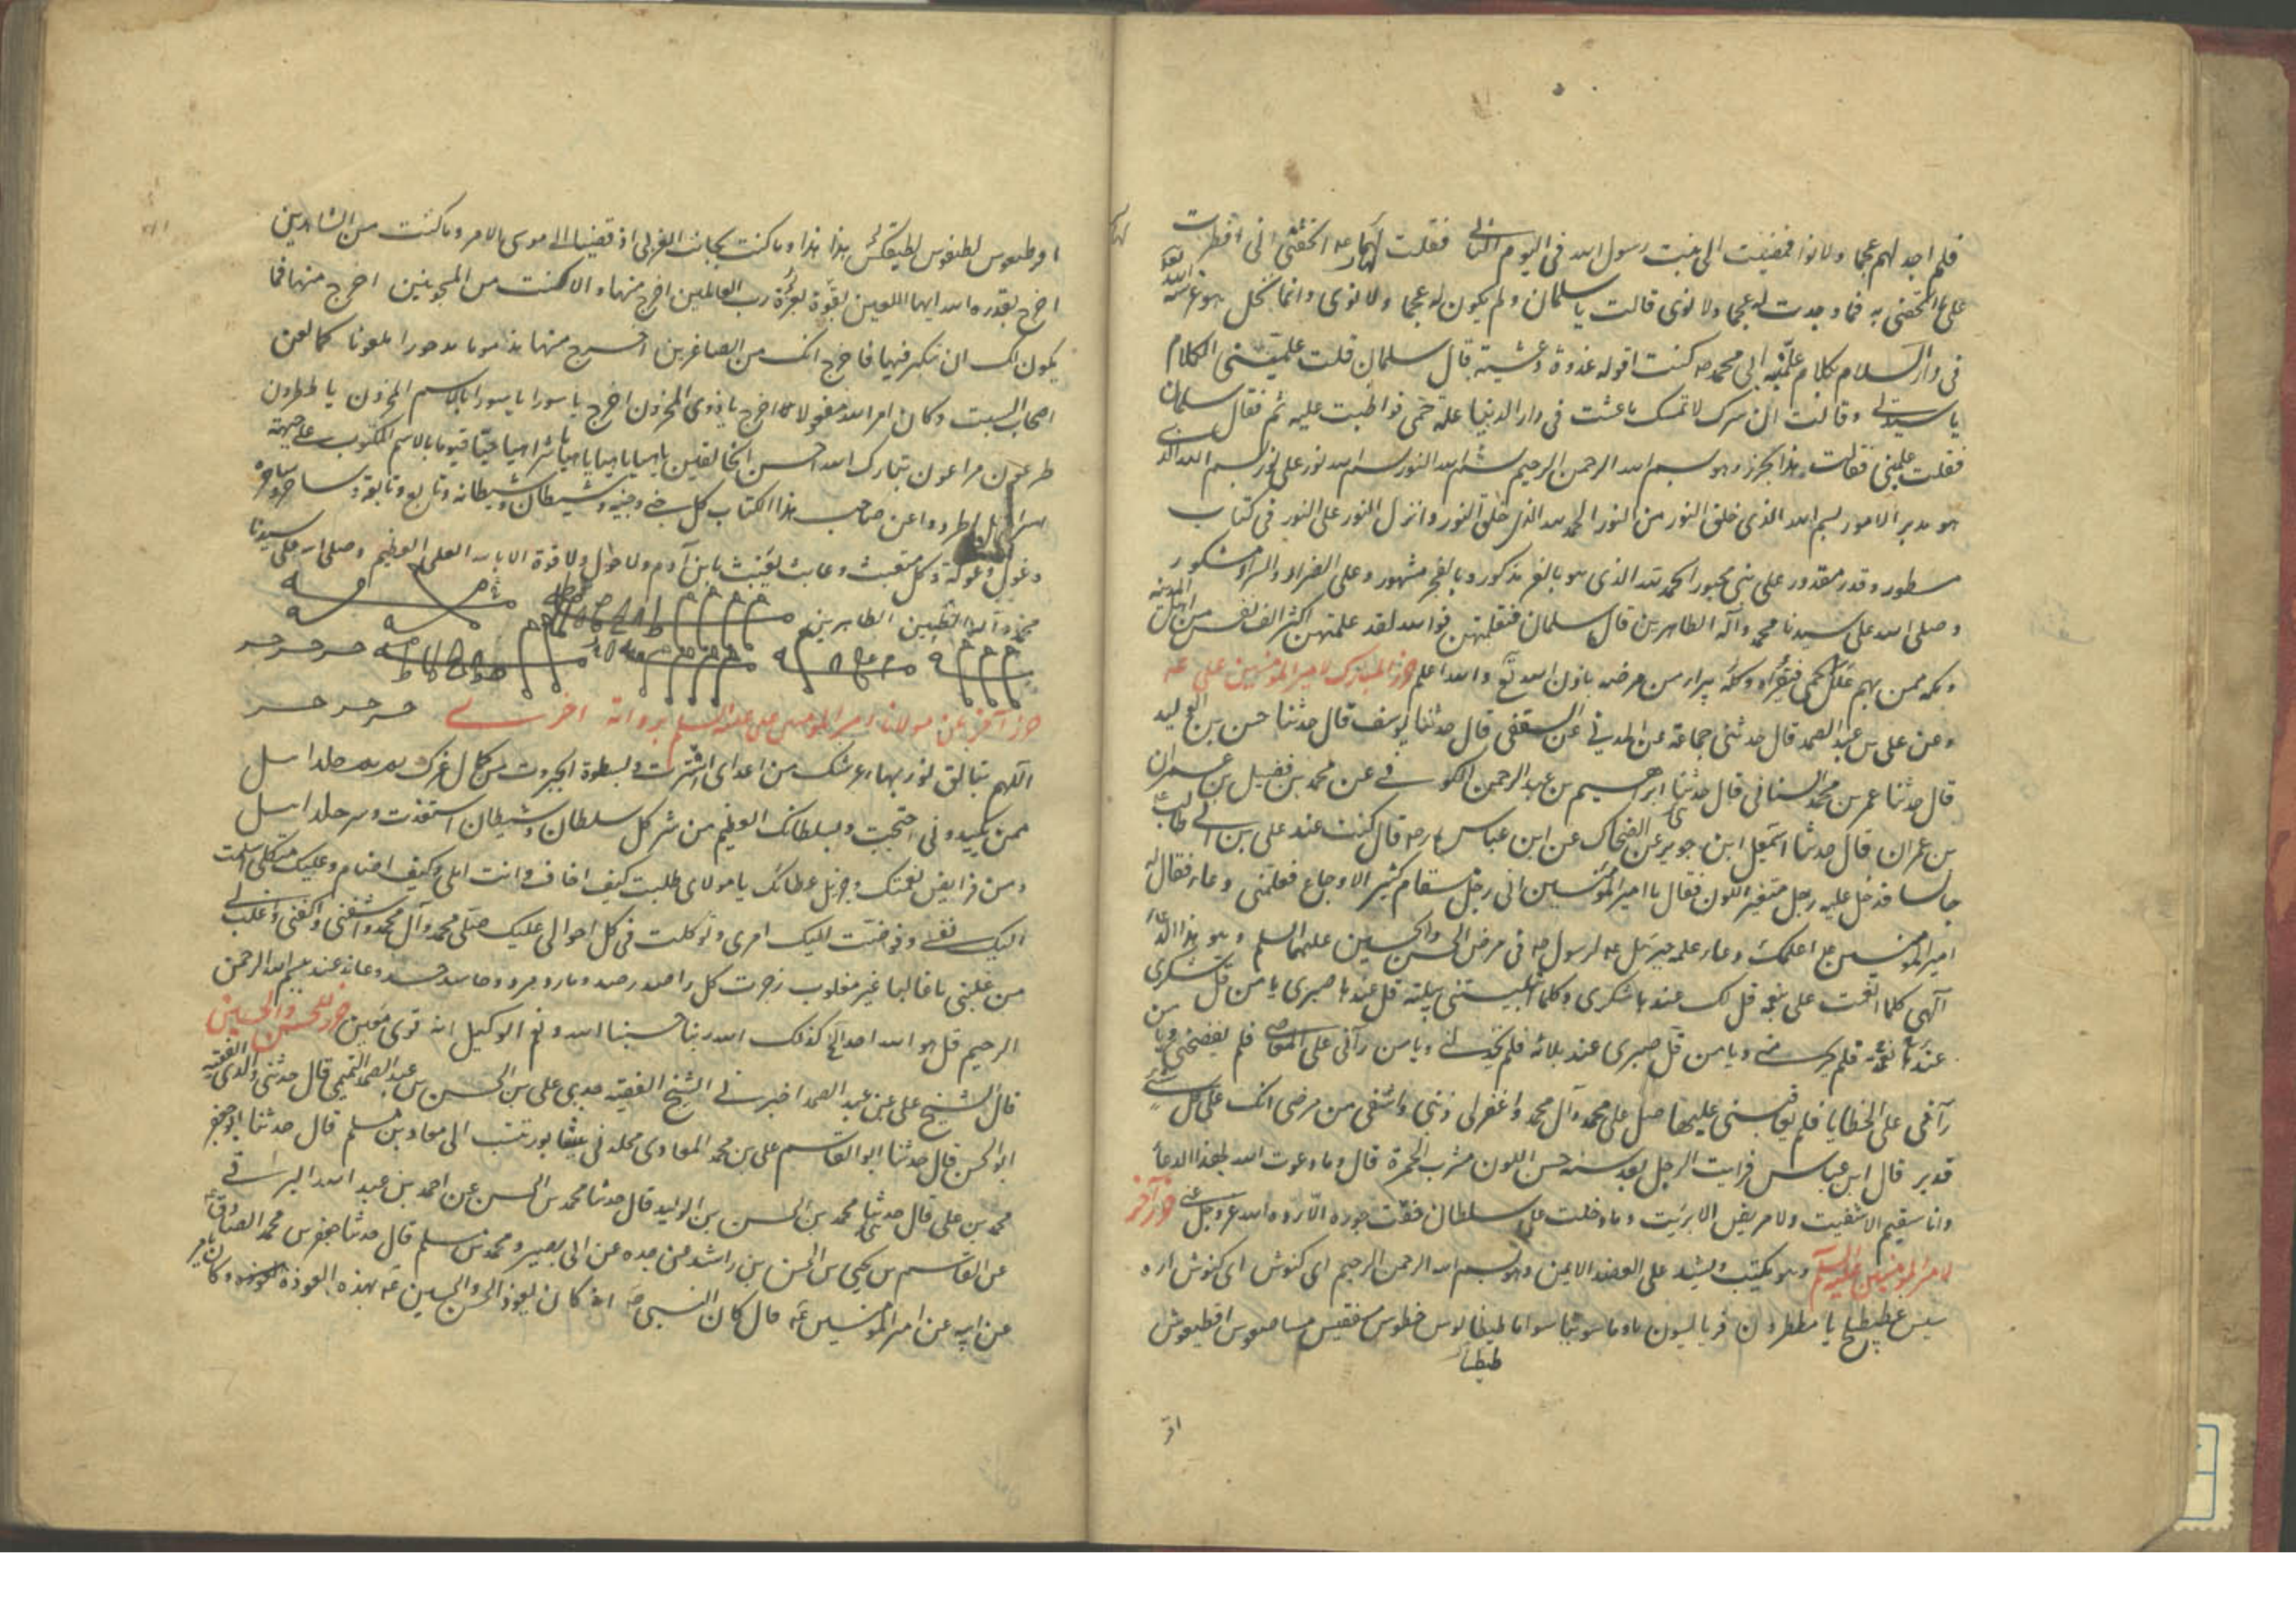 فلم اجد لهم عجما ولا نوا فمضيت الى بنت رسول الله فى اليوم الثانى فقلت لها ع اتحفتنى انى افطرت
على ما اتحفتنى به فما وجدت له عجما ولا نوى قالت يا سلمان ولم يكون له عجما ولا نوى وانما نخل هو غرسه الله
فى دار السلام بكلام علمنيه ابى محمد ص كنت اقوله غدوة وعشية قال سلمان قلت علمينى الكلام
يا سيدتى وقالت ان سرك لا تمسك ما عشت فى دار الدنيا علة حمى فواظبت عليه ثم فقال سلمان
فقلت علمينى فقالت هذا الحرز وهو بسم الله الرحمن الرحيم بسم الله النور بسم الله نور على نور بسم الله الذى
هو مدبر الامور بسم الله الذى خلق النور من النور الحمد لله الذى خلق النور وانزل النور على النور فى كتاب
مسطور وقدر مقدور على نبى محبور الحمد لله الذى هو بالعز مذكور وبالفخر مشهور وعلى الضراء والسراء مشكور
وصلى الله على سيدنا محمد وآله الطاهرين قال سلمان فتعلمتهن فوالله لقد علمتهن اكثر الف نفس من اهل المدينة
ومكة ممن بهم علل حمى فبرأ من مرضه باذن الله تع والله اعلم حرز المبارك لامير المؤمنين على ع
وعن على بن عبد الصمد قال حدثنى جماعة عن المدينى عن السقفى قال حدثنا يوسف قال حدثنا حسن بن الوليد
قال حدثنا عمر بن محمد السنانى قال حدثنا ابرهيم بن عبد الرحمن الكوفى عن محمد بن فضيل بن عمران
بن عمران قال حدثنا اسمعيل ابن جويبر عن الضحاك عن ابن عباس ره قال كنت عند على بن ابى طالب
جالسا فدخل عليه رجل متغير اللون فقال يا امير المؤمنين انى رجل مسقام كثير الاوجاع فعلمنى دعاء فقال له
امير المؤمنين ع اعلمك دعاء علمه جبرئيل ع لرسول ص فى مرض الحسن والحسين عليهما السلم وهو هذا الدعاء
الهى كلما انعمت على بنعمة قل لك عندها شكرى وكلما ابتليتنى ببلية قل عندها صبرى يا من قل شكرى
عند نعمته فلم يحرمنى ويا من قل صبرى عند بلائه فلم يخذلنى ويا من رآنى على المعاصى فلم يفضحنى ويا من
رآنى على الخطايا فلم يعاقبنى عليها صل على محمد وآل محمد واغفر لى ذنبى واشفى من مرضى انك على كل شئ
قدير قال ابن عباس فرايت الرجل بعد سنة حسن اللون مشرب الحمرة قال وما دعوت الله بهذا الدعاء
وانا سقيم الا شفيت ولا مريض الا بريت وما دخلت على سلطان فخفت جوره الا رده الله عز وجل عنى حرز آخر
لامير المؤمنين عليه السلم وهو يكتب ويشد على العضد الايمن وهو بسم الله الرحمن الرحيم اى كنوش اى كنوش اره
شش عطيطسفيخ يا مططرون قريالسيون ما وما سوما سوما طيطسالوس خطوس مسفقيس مساصعوس اقطيعوش
لطيفكس هذا هذا وما كنت بجانب الغربى اذ قضينا الى موسى الامر وما كنت من الشاهدين
اخرج بقدرة الله ايها اللعين بقوة بعزة رب العالمين اخرج منها والا كنت من المسجونين اخرج منها فما
يكون لك ان تتكبر فيها فاخرج انك من الصاغرين اخرج منها مذموما مدحورا ملعونا كما لعن
اصحاب السبت وكان امر الله مفعولا اخرج يا ذوى المخزون اخرج يا سورا يا سورا بالاسم المخزون يا ططرون
طرعون مراعون تبارك الله احسن الخالقين يا هيا يا هيا شراهيا حيا قيوما بالاسم المكتوب على جبهة
اسرافيل اطردوا عن صاحب هذا الكتاب كل جنى وجنية وشيطان وشيطانة وتابع وتابعة وساحر وساحرة
وغول وغولة وكل متعبث وعابث يعبث بابن آدم ولا حول ولا قوة الا بالله العلى العظيم وصلى الله على سيدنا
محمد وآله الطيبين الطاهرين
حرز آخر عن مولانا امير المؤمنين على عليه السلم برواية اخرى
اللهم بتالق نور بهاء عرشك من اعداى استترت وبسطوة الجبروت من كمال عزك
ممن يكيدونى احتجبت وبسلطانك العظيم من شر كل سلطان وشيطان استعذت
ومن فرايض نعمتك وجزيل عطائك يا مولاى طلبت كيف اخاف وانت املى وكيف اضام وعليك متكلى اسلمت
اليك نفسى وفوضت اليك امرى وتوكلت فى كل احوالى عليك صل على محمد وآل محمد واشفنى واكفنى واغلب لى
من غلبنى يا غالبا غير مغلوب زجرت كل راصد رصد ومارد مرد وحاسد حسد وعاند عند ببسم الله الرحمن
الرحيم قل هو الله احد الخ كذلك الله ربنا حسبنا الله ونعم الوكيل انه قوى معين حرز للحسن والحسين
قال الشيخ على بن عبد الصمد اخبرنى الشيخ الفقيه جدى على بن الحسن بن عبد الصمد التميمى قال حدثنى والدى الفقيه
ابو الحسن قال حدثنا ابو القاسم على بن محمد المعادى محلة فى نيشابور تنسب الى معاد بن مسلم قال حدثنا ابو جعفر
محمد بن على قال حدثنى محمد بن الحسن بن الوليد قال حدثنا محمد بن الحسن عن احمد بن عبد الله البراقى
عن القاسم بن يحيى بن الحسن بن راشد عن جده عن ابى بصير ومحمد بن مسلم قال حدثنا جعفر بن محمد الصادق ع
عن ابيه عن امير المؤمنين ع قال كان النبى ص انه كان يعوذ الحسن والحسين ع بهذه العوذة وكان يامر